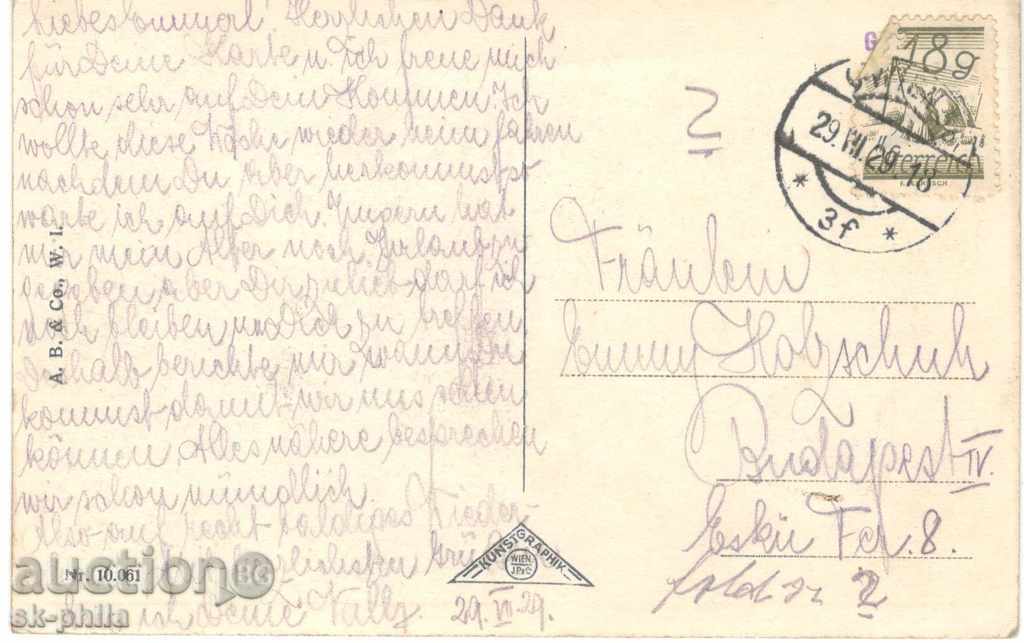 Liebes Emmerl! Herzlichen Dank
für Deine Karte u. ich freue mich
schon sehr auf Dein Kommen. Ich
wollte diese Woche wieder heim fahren
nachdem Du aber herkommst so
warte ich auf Dich. Ingern hat
mir mein Alter noch Urlaub zu
gegeben aber Dir zulieb darf ich
noch bleiben um Dich zu treffen
deshalb berichte mir wann Du
kommst damit wir uns sehen
können. Alles nähere besprechen
wir schon mündlich.
Also auf recht baldiges Wieder-
herzlichsten
ich Deine
A. B. & Co., W. I.
Nr. 10.061
KUNSTGRAPHIK
WIEN
J.P.&C.
29. VII. 29.
18g
Österreich
29.VII.29.18
* 3f *
2
Fräulein
Emmy Holzschuh
Budapest IV.
Eskü Tér. 8.
2
auction BG
sk-phila